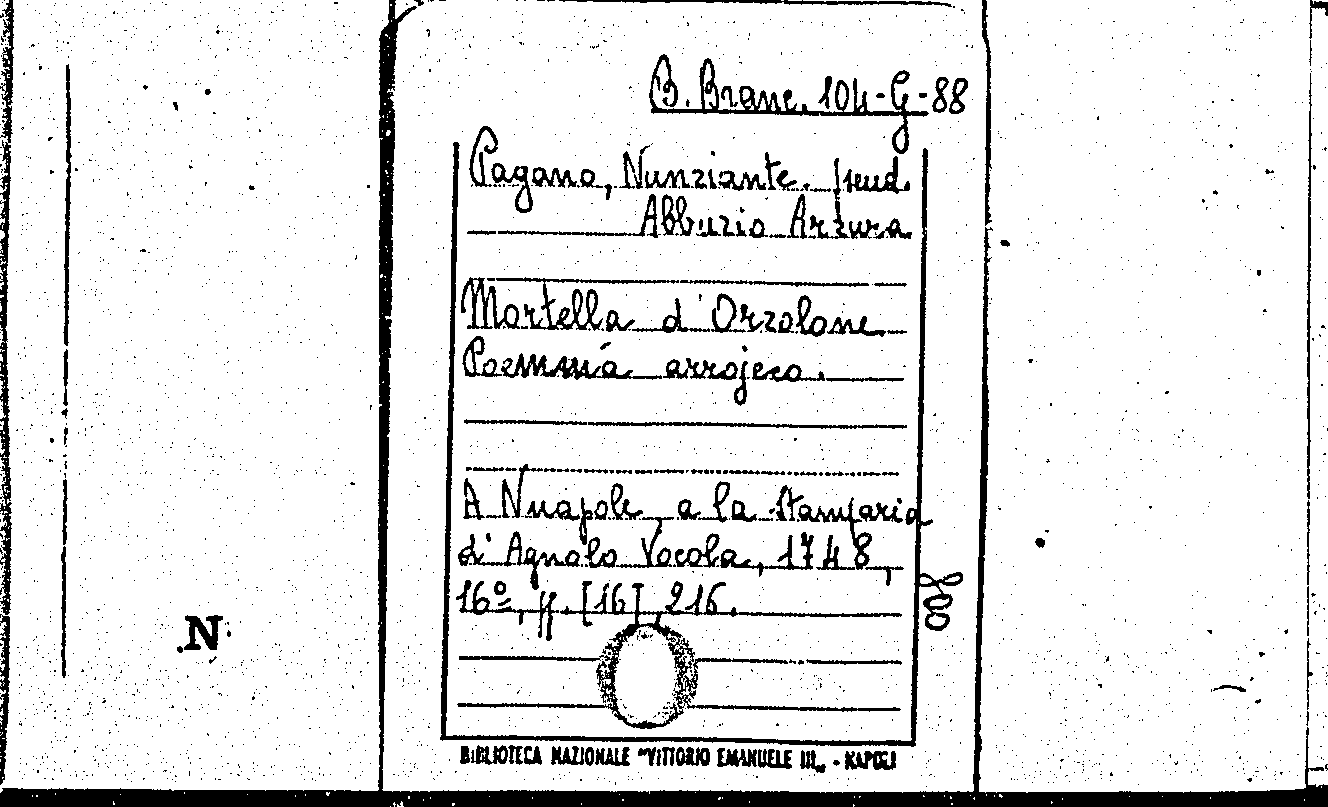 B. Branc. 104-G-88
Pagano, Nunziante. pseud.
Abbuzio Arzura
Mortella d'Orzolone
Poemma arrojeco.
A Nnapole, a la Stamparia
d'Agnolo Vocola, 1748,
16º, pp. [16] 216.
800
N
BIBLIOTECA NAZIONALE "VITTORIO EMANUELE III„ - NAPOLI